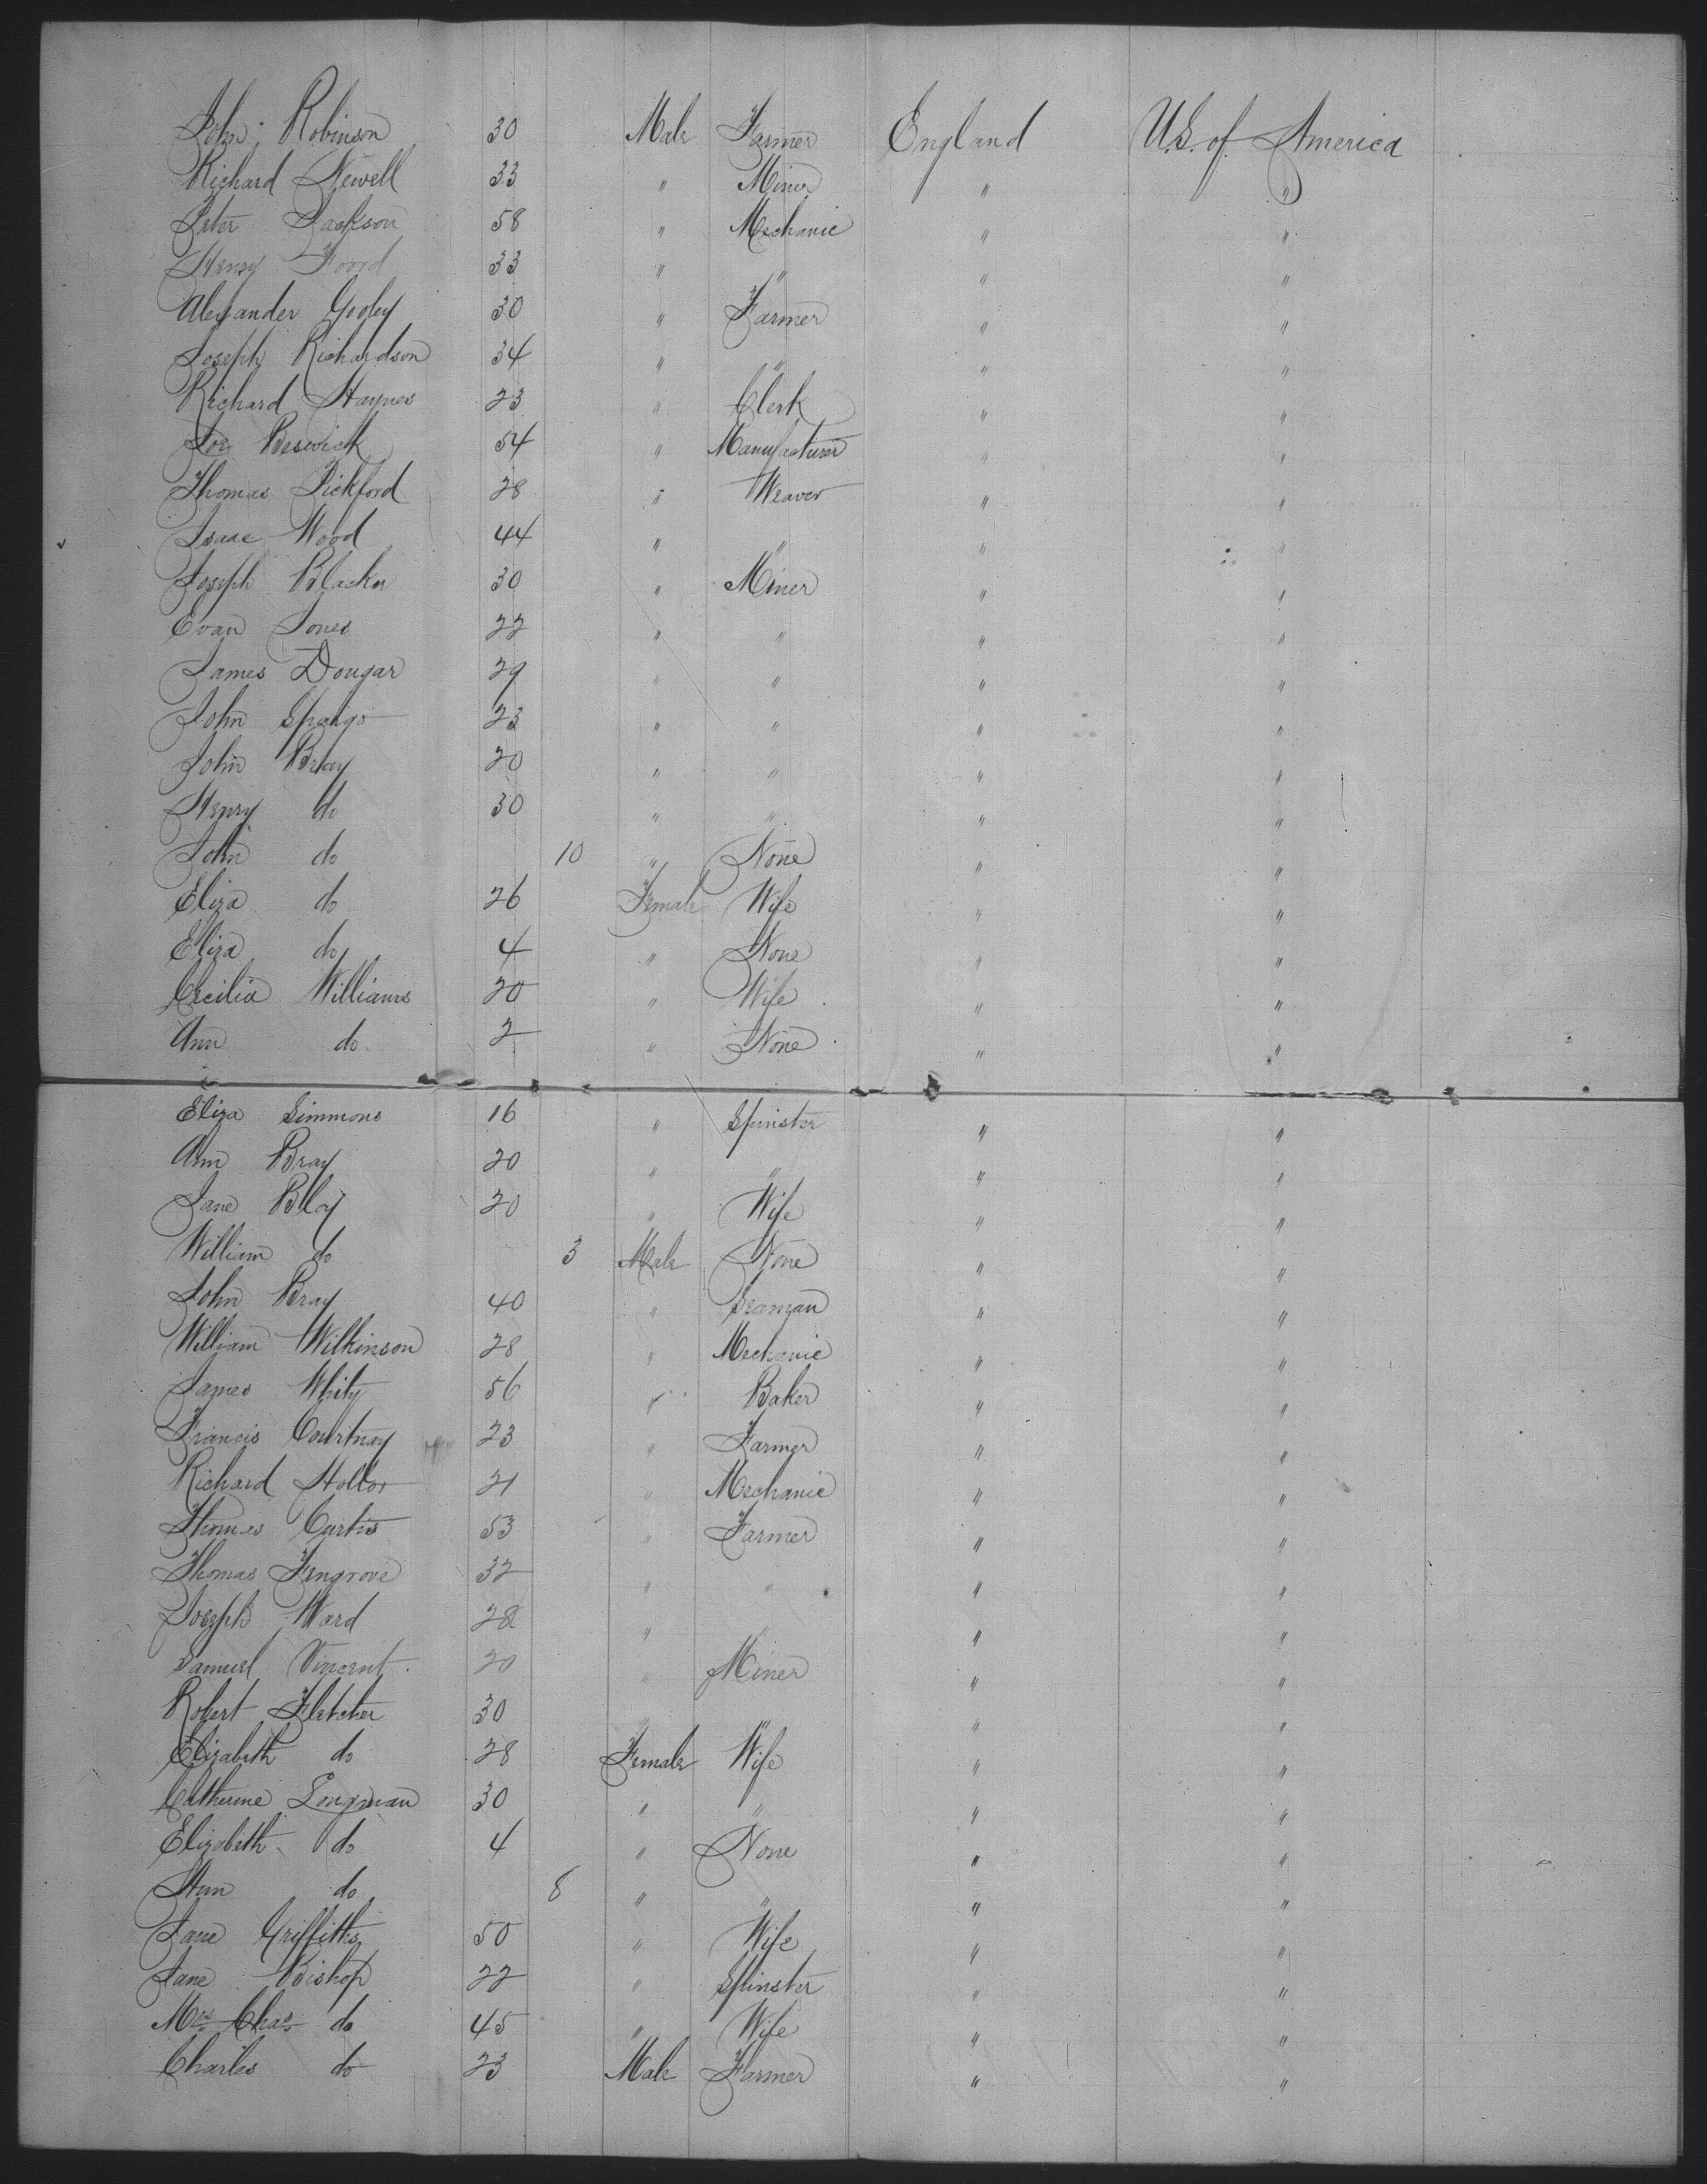 John Robinson 30 Male Farmer England U.S. of America
Richard Newell 33 " Miner " "
Peter Jackson 58 " Mechanic " "
Henry Foord 33 " " " "
Alexander Gooley 30 " Farmer " "
Joseph Richardson 34 " " " "
Richard Haynes 23 " Clerk " "
Jos Beswick 54 " Manufacturer " "
Thomas Pickford 28 " Weaver " "
Isaac Wood 44 " " " "
Joseph Blacker 30 " Miner " "
Evan Jones 22 " " " "
James Dougar 29 " " " "
John Spargo 23 " " " "
John Bray 20 " " " "
Henry do 30 " " " "
John do 10 " None " "
Eliza do 26 Female Wife " "
Eliza do 4 " None " "
Cecilia Williams 20 " Wife " "
Ann do 2 " None " "
Eliza Simmons 16 " Spinster " "
Ann Bray 20 " " " "
Jane Bloy 20 " Wife " "
William do 3 Male None " "
John Bray 40 " Seaman " "
William Wilkinson 28 " Mechanic " "
James Whity 56 " Baker " "
Francis Courtnay 23 " Farmer " "
Richard Hollor 21 " Mechanic " "
Thomas Curtis 53 " Farmer " "
Thomas Fengrove 32 " " " "
Joseph Ward 28 " " " "
Samuel Vincent 20 " Miner " "
Robert Fletcher 30 " " " "
Elizabeth do 28 Female Wife " "
Catherine Longman 30 " " " "
Elizabeth do 4 " None " "
Ann do 8 " " " "
Jane Griffiths 50 " Wife " "
Jane Bishop 22 " Spinster " "
Mrs Chas do 45 " Wife " "
Charles do 23 Male Farmer " "